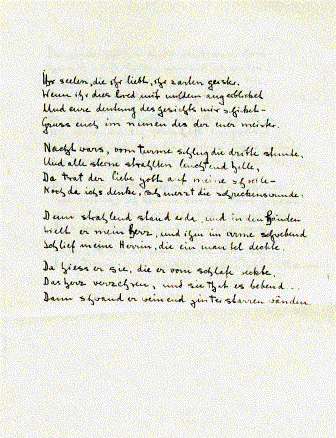 Ihr seelen, die ihr liebt, ihr zarten geister,
Wenn ihr dies Lied mit mildem aug erblicket
Und eure deutung des gesichts mir schicket -
Gruss euch im namen des der euer meister.

Nacht wars, vom turme schlug die dritte stunde,
Und alle sterne strahlten leuchtend helle,
Da trat der liebe gott auf meine schwelle -
Noch da ichs denke, schmerzt die schreckenswunde.

Denn strahlend stand er da, und in den Händen
hielt er mein Herz, und ihm im arme schwebend
Schlief meine Herrin, die ein mantel deckte.

Da hiess er sie, die er vom schlafe weckte,
Das herz verzehren, und sie that es bebend...
Dann schwand er weinend hinter starren wänden.